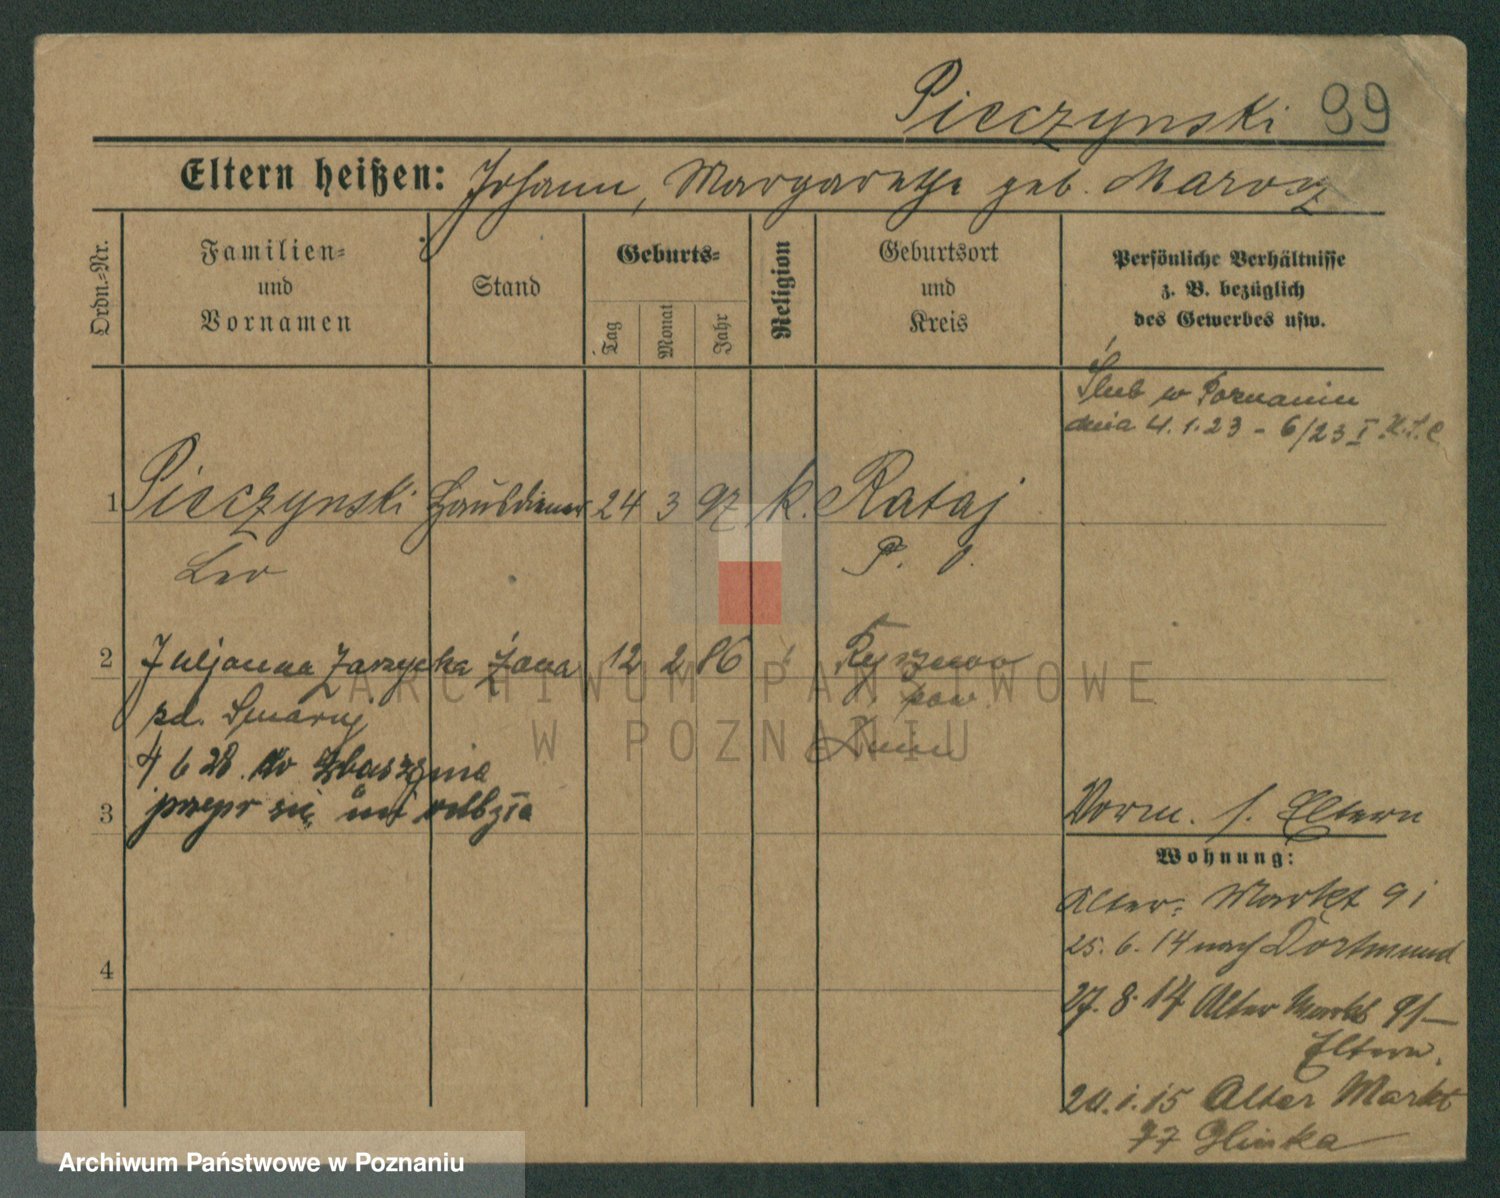 Pieczynski 99
Eltern heißen: Johann, Margarethe geb. Marosz
Ordn.-Nr.
Familien-
und
Vornamen
Stand
Geburts-
Tag
Monat
Jahr
Religion
Geburtsort
und
Kreis
Persönliche Verhältnisse
z. B. bezüglich
des Gewerbes usw.
Ślub w Poznaniu
dnia 4.1.23 - 6/23 I
1 Pieczynski Hausdiener 24 3 97 k. Rataj
Leo P. O.
2 Juljanna Zarzycka żona 12 2 86
pow.
4 6 28. do Zbąszynia
3 się odbyła
Vorm. s. Eltern
Wohnung:
Alter- Markt 91
25. 6. 14 nach Dortmund
27. 8. 14 Alter Markt 91 -
Eltern.
4
20.1.15 Alter Markt
77 Glinka
ARCHIWUM PAŃSTWOWE
W POZNANIU
Archiwum Państwowe w Poznaniu